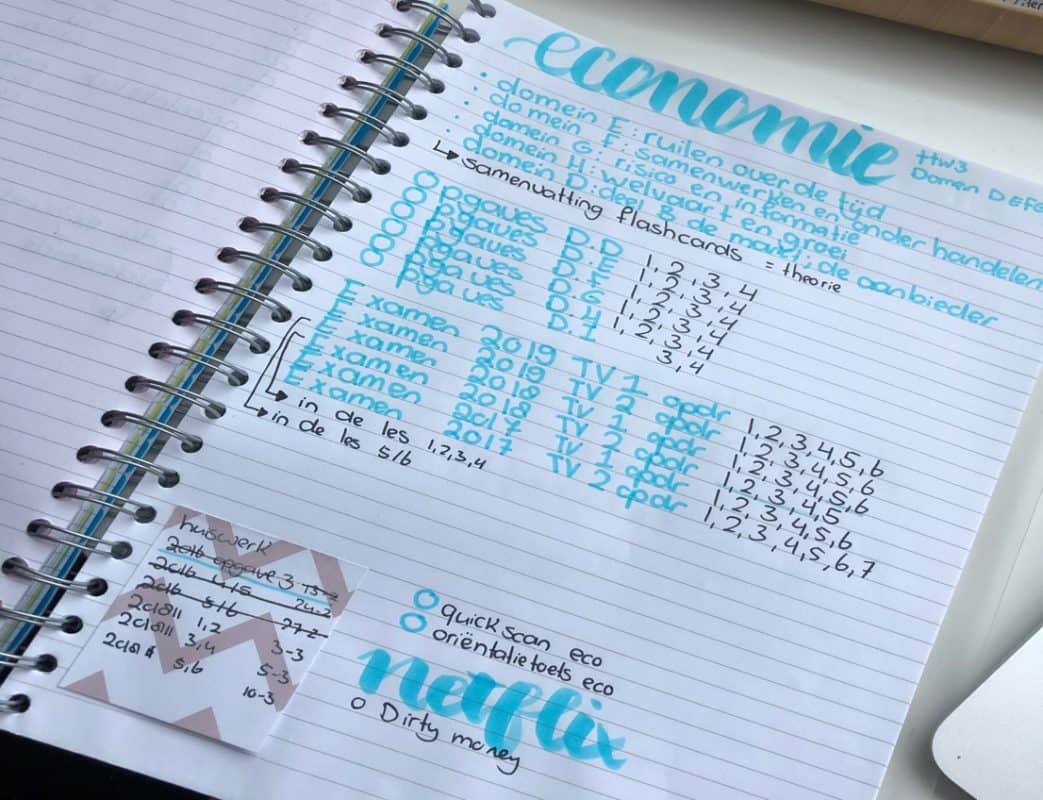 economie
ttw3
Domein DEFG
• domein E: ruilen over de tijd
• domein F: samenwerken en onder handelen
• domein G: risico en informatie
• domein H: welvaart en groei
domein D: deel B de markt: de aanbieder
↳ samenvatting flashcards = theorie
O pgaves D.D 1, 2, 3, 4
O pgaves D.E 1, 2, 3, 4
O pgaves D.F 1, 2, 3, 4
O pgaves D.G 1, 2, 3, 4
O pgaves D.H 1, 2, 3, 4
D.I 3, 4
Examen 2019 TV 1 opdr 1, 2, 3, 4, 5, 6
Examen 2018 TV 2 opdr 1, 2, 3, 4, 5, 6
Examen 2018 TV 1 opdr 1, 2, 3, 4, 5, 6
Examen 2017 TV 2 opdr 1, 2, 3, 4, 5
Examen 2017 TV 1 opdr 1, 2, 3, 4, 5, 6
TV 2 opdr 1, 2, 3, 4, 5, 6, 7
→ in de les 1,2,3,4
→ in de les 5/6
huiswerk
2016 opgave 3
2016 4/5 24-2
2016 5/6 27-2
1,2 3-3
3,4 5-3
5,6 10-3
O quickscan eco
O oriëntatietoets eco
netflix
O Dirty money